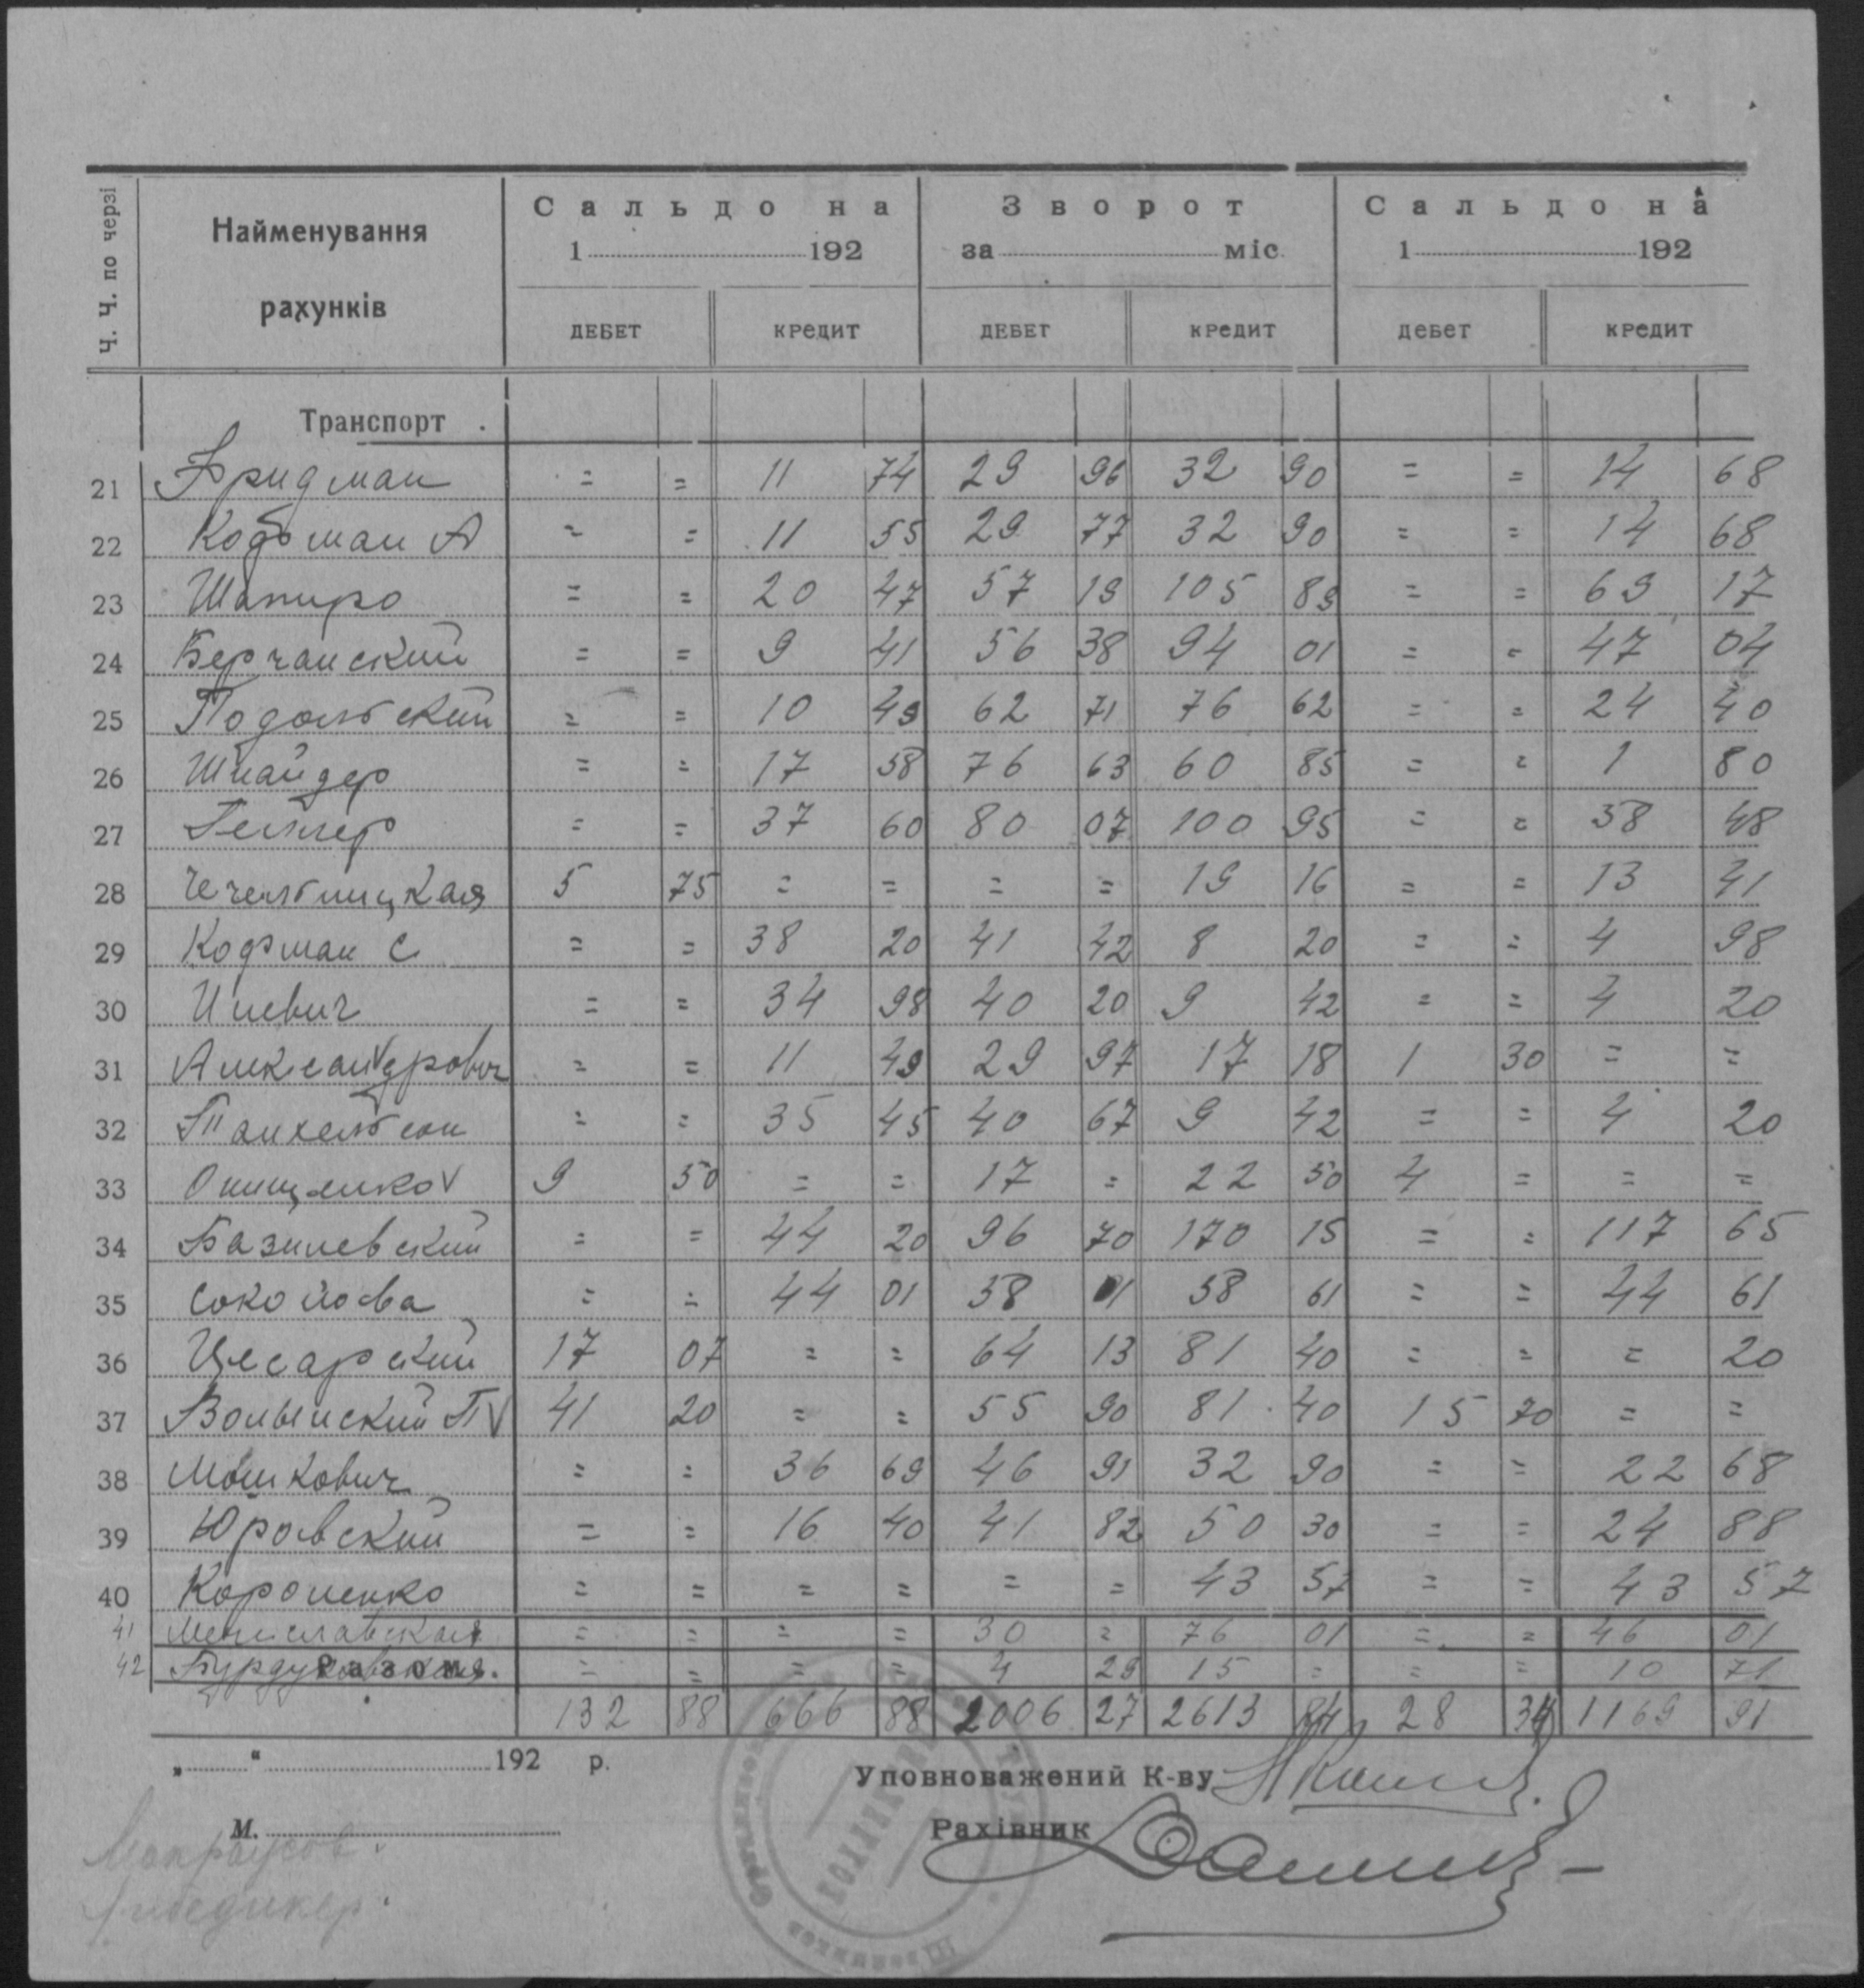 Ч. Ч. по черзі Найменування рахунків Сальдо на Зворот Сальдо на
1 192 за міс. 1 192
ДЕБЕТ КРЕДИТ ДЕБЕТ КРЕДИТ ДЕБЕТ КРЕДИТ
Транспорт .
21 Фридман = = 11 74 29 96 32 90 = = 14 68
22 Кофман А = = 11 55 29 77 32 90 = = 14 68
23 Шапиро = = 20 47 57 19 105 89 = = 69 17
24 Берчанский = = 9 41 56 38 94 01 = = 47 04
25 Подольский = = 10 49 62 71 76 62 = = 24 40
26 Шнайдер = = 17 58 76 63 60 85 = = 1 80
27 Геллер = = 37 60 80 07 100 95 = = 58 48
28 Чечельницкая 5 75 = = = = 19 16 = = 13 41
29 Кофман С = = 38 20 41 42 8 20 = = 4 98
30 Илевич = = 34 98 40 20 9 42 = = 4 20
31 Александрович = = 11 49 29 97 17 18 1 30 = =
32 Танхельсон = = 35 45 40 67 9 42 = = 4 20
33 Онищенко V 9 50 = = 17 = 22 50 4 = = =
34 Базилевский = = 44 20 96 70 170 15 = = 117 65
35 Соколова = = 44 01 58 01 58 61 = = 44 61
36 Цесарский 17 07 = = 64 13 81 40 = = = 20
37 Волынский П V 41 20 = = 55 90 81 40 15 70 = =
38 Мошкович = = 36 69 46 91 32 90 = = 22 68
39 Юровский = = 16 40 41 82 50 30 = = 24 88
40 Короленко = = = = = = 43 57 = = 43 57
41 = = = = 30 = 76 01 = = 46 01
42 Разом. = = = = 4 29 15 = = = 10 71
132 88 666 88 2006 27 2613 84 28 34 1169 91
„ “ 192 р.
Уповноважений К-ву
М.
Рахівник